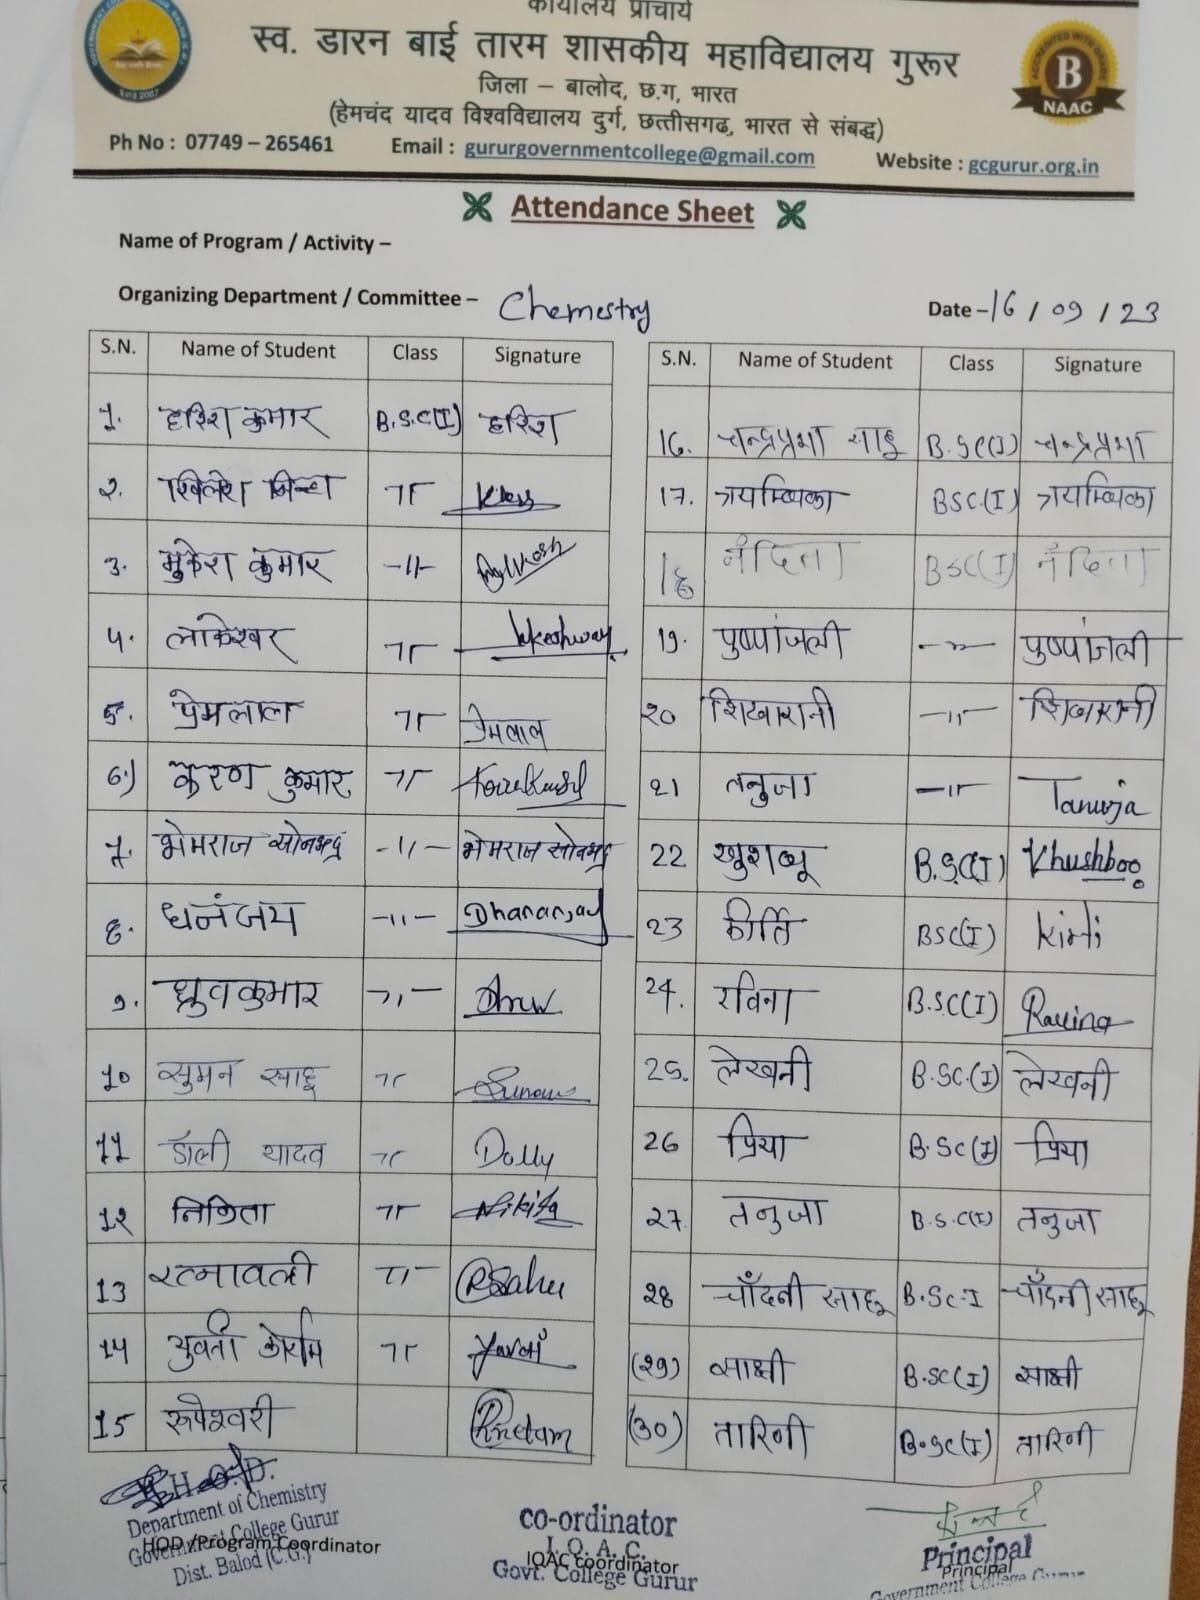 कार्यालय प्राचार्य
स्व. डारन बाई तारम शासकीय महाविद्यालय गुरूर
जिला – बालोद, छ.ग, भारत
(हेमचंद यादव विश्वविद्यालय दुर्ग, छत्तीसगढ, भारत से संबद्ध)
Ph No : 07749 – 265461 Email : gururgovernmentcollege@gmail.com Website : gcgurur.org.in
ACCREDITED WITH GRADE
B
NAAC
Attendance Sheet
Name of Program / Activity –
Organizing Department / Committee – Chemestry Date – 16 / 09 / 23
S.N. Name of Student Class Signature
1. हरिश कुमार B.S.C(I) हरिश
2. खिलेश
3. मुकेश कुमार -11-
4. लाकेश्वर 11 lokeshwar
5. प्रेमलाल 11 प्रेमलाल
6.) करण कुमार 11
7. भेमराज सोनभद्र -11- भेमराज सोनभद्र
8. धनंजय -11- Dhananjay
9. ध्रुवकुमार -11- Dhruw
10 सुमन साहू 11 Suman
11 डॉली यादव 11 Dolly
12 निकिता 11 Nikita
13 रत्नावली 11 RSahu
14 युवती कोर्राम 11 Yuvati
15 रूपेश्वरी
S.N. Name of Student Class Signature
16. चन्द्रप्रभा साहू B.SC(I) चन्द्रप्रभा
17. त्रयम्बिका BSC.(I) त्रयम्बिका
18 नंदिता BSC(I) नंदिता
19. पुष्पांजली -11- पुष्पांजली
20 शिखारानी -11- शिखारानी
21 तनुजा -11- Tanuja
22 खुशबू B.SC(I) Khushboo
23 कीर्ति BSC(I) Kirti
24. रविना B.SC(I) Ravina
25. लेखनी B.SC.(I) लेखनी
26 प्रिया B.SC(I) प्रिया
27. तनुजा B.S.C(I) तनुजा
28 चाँदनी साहू B.Sc-I चाँदनी साहू
(29) साक्षी B.SC(I) साक्षी
(30) तारिणी B.SC(I) तारिणी
H.O.D.
Department of Chemistry
Government College Gurur
Dist. Balod (C.G.)
HOD /Program Coordinator
co-ordinator
I.Q.A.C.
Govt. College Gurur
IQAC Coordinator
Principal
Government College Gurur
Principal